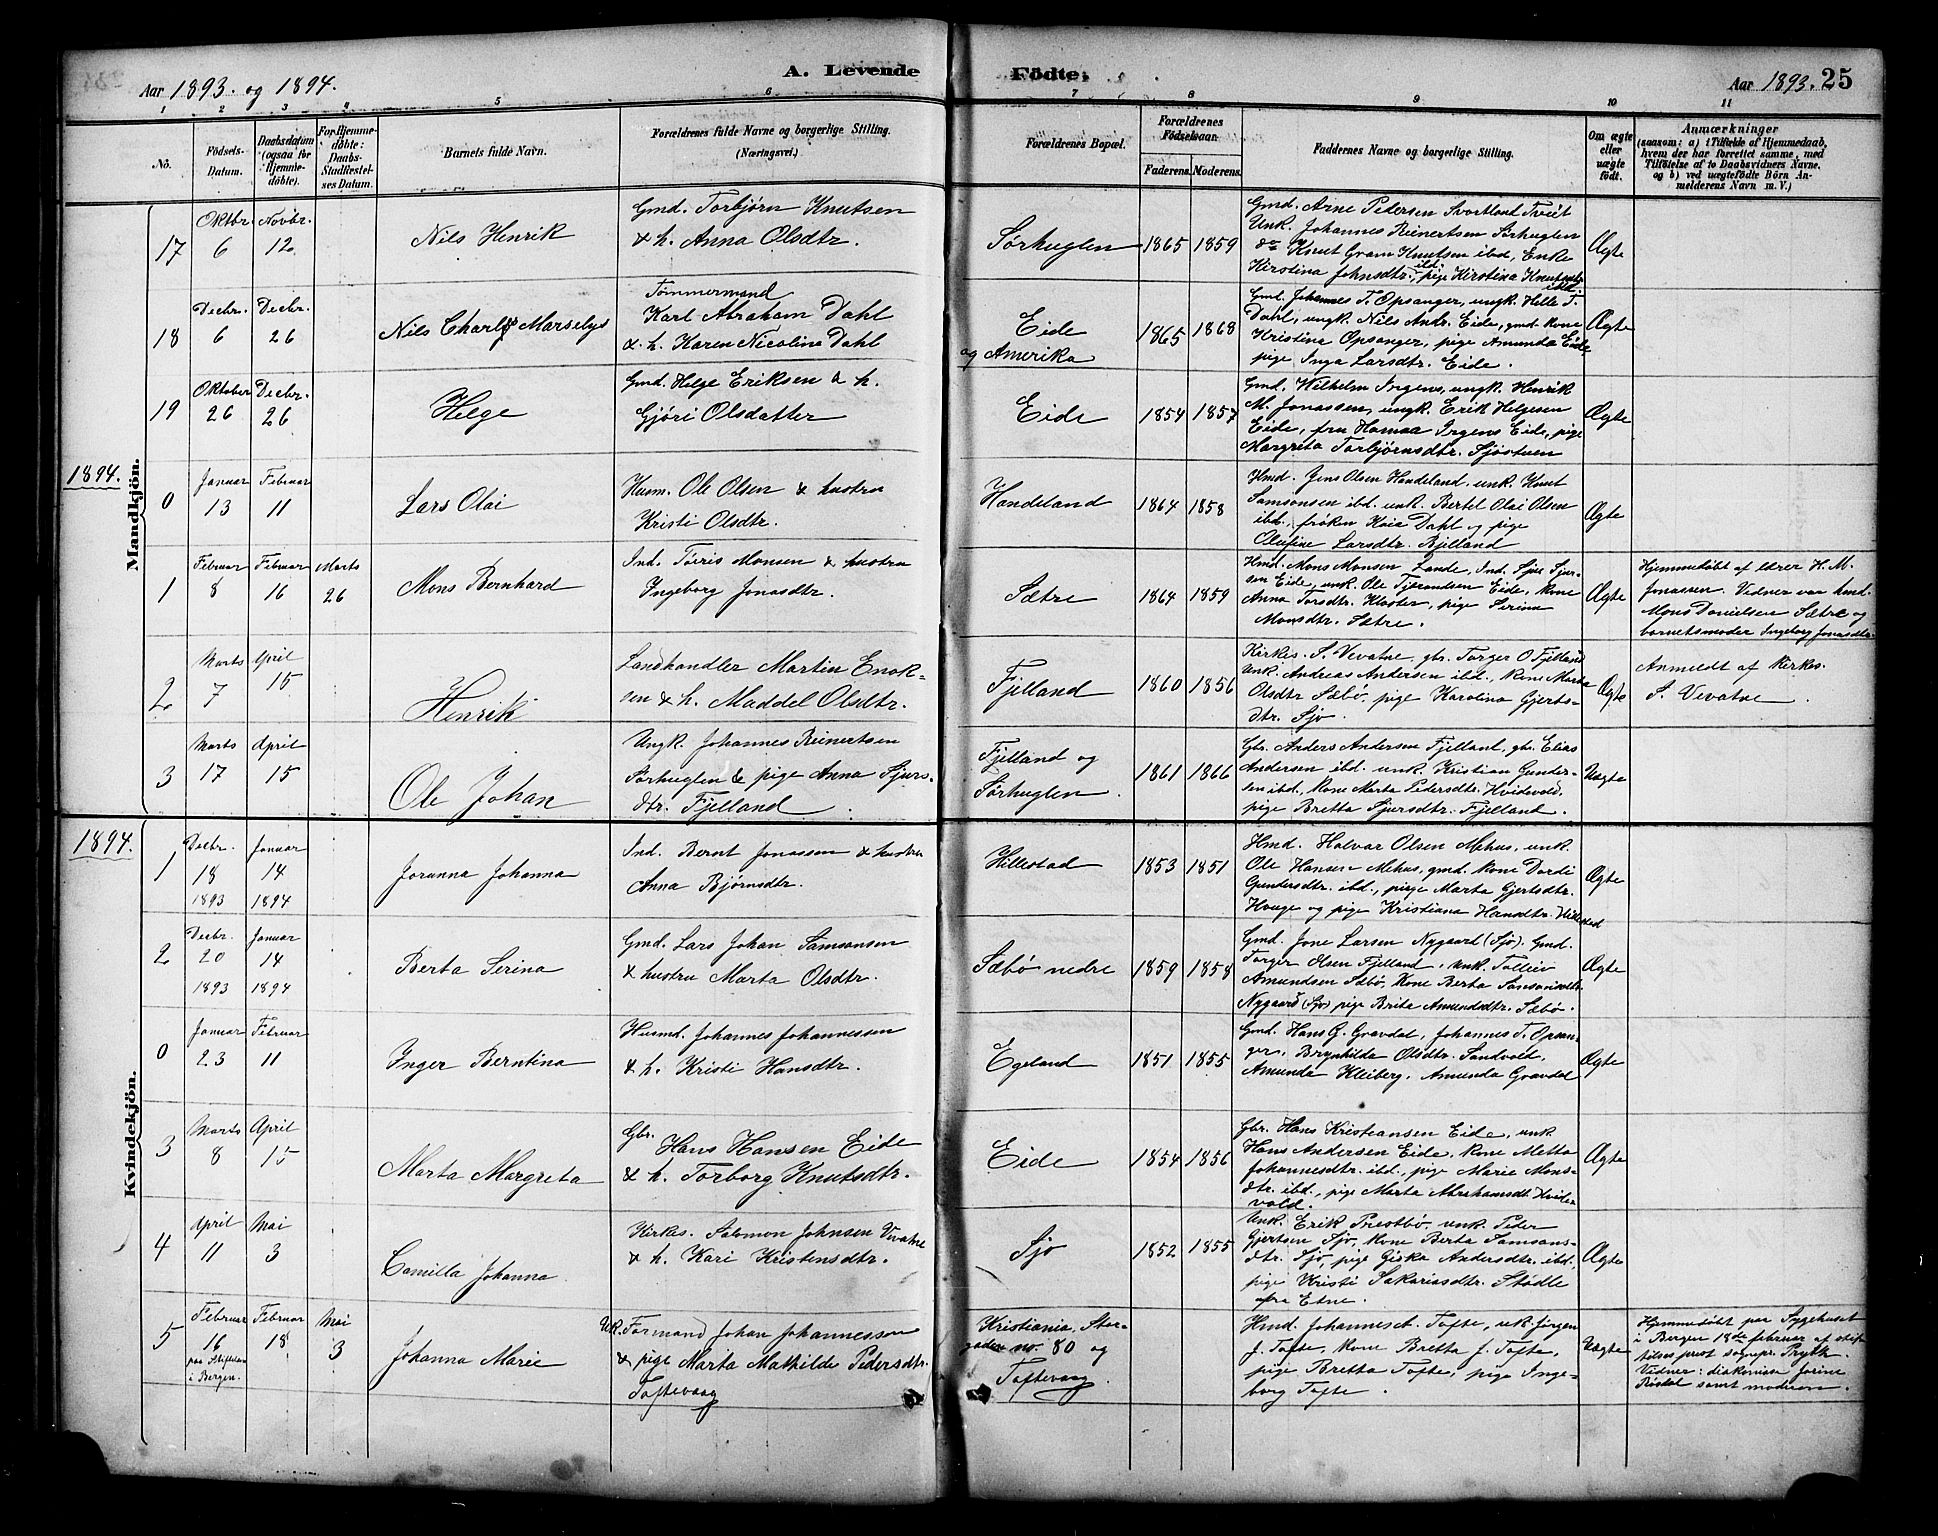 Aar 1893. og 1894.
A. Levende
Fødte.
Aar 1893. 25
1 2 3 4 5 6 7 8 9 10 11
No.
Fødsels-
Datum.
Daabsdatum
(ogsaa for
Hjemme-
døbte).
For Hjemme-
døbte:
Daabs-
Stadfæstel-
ses Datum.
Barnets fulde Navn.
Forældrenes fulde Navne og borgerlige Stilling.
(Næringsvei.)
Forældrenes Bopæl.
Forældrenes
Fødselsaar.
Faderens. Moderens.
Faddernes Navne og borgerlige Stilling.
Om ægte
eller
uægte
født.
Anmærkninger
(saasom: a) i Tilfælde af Hjemmedaab,
hvem der har forrettet samme, med
Tilføielse af to Daabsvidners Navne.
og b) ved uægtefødte Børn An-
melderens Navn m. V.)
Mandkjön.
17
Oktbr.
6
Novbr.
12
Nils Henrik
Gmd. Torbjørn Knutsen
& h. Anna Olsdtr.
Sørhuglen
1865 1859
Gmd. Arne Pedersen Svortland Tveit
Unk. Johannes Reinertsen Sørhuglen
do Knut Gram Knutsen ibd, Enke
Kirstina Johnsdtr. ibd. pige Kirstina Knutsdtr
ibd.
Ægte
18
Decbr.
6
Decbr.
26
Nils Charles Marselys
Tømmermand
Karl Abraham Dahl
& h. Karen Nicolina Dahl
Eide
og Amerika
1865 1868
Gmd. Johannes T. Opsanger, ungk. Helle T.
Dahl, ungk. Nils Andr. Eide, gmd. kone
Kristina Opsanger, pige Amunda Eide
pige Inga Larsdtr. Eide.
Ægte
19
Oktober
26
Decbr.
26
Helge
Gmd. Helge Eriksen & h.
Gjøri Olsdatter
Eide
1854 1857
Gmd. Wilhelm Irgens, ungk. Henrik
M. Jonassen, ungk. Erik Helgesen
Eide, fru Hanna Irgens Eide, pige
Margreta Torbjørnsdtr. Sjostuen
Ægte
1894.
0
Januar
13
Februar
11
Lars Olai
Husm. Ole Olsen & hustru
Kristi Olsdtr.
Handeland
1864 1858
Hmd. Jens Olsen Handeland, unk. Knut
Samsonsen ibd. unk. Bertel Olai Olsen
ibd., frøken Kaia Dahl og pige
Olufine Larsdtr. Bjelland
Ægte
1
Februar
8
Februar
16
Marts
26
Mons Bernhard
Ind. Tøris Monsen & hustru
Ingeborg Jonasdtr.
Sætre
1864 1859
Hmd. Mons Monsen Lande, Ind. Sjur Sjur-
sen Eide, unk. Ole Tjerandsen Eide, kone
Anna Torsdtr. Kloster, pige Serina
Monsdtr. Sætre.
Ægte
Hjemmedøbt af lærer H. M.
Jonassen. Vidner var hmd.
Mons Danielsen Sætre og
barnetsmoder Ingeborg Jonasdtr.
2
Marts
7
April
15
Henrik
Landhandler Martin Enok-
sen & h. Maddel Olsdtr.
Fjelland
1860 1856
Kirkes. S. Vevatne, gbr. Torger O Fjelland
unk. Andreas Andersen ibd., kone Marta
Olsdtr Sæbø, pige Karolina Gjerts-
dtr. Sjo.
Ægte
Anmeldt af Kirkes.
S. Vevatne.
3
Marts
17
April
15
Ole Johan
Ungk. Johannes Reinertsen
Sørhuglen & pige Anna Sjurs-
dtr. Fjelland
Fjelland og
Sørhuglen.
1861 1866
Gbr. Anders Andersen Fjelland, gbr. Elias
Andersen ibd. unk. Kristian Gunder-
sen ibd, kone Marta Pedersdtr. Hvidevold,
pige Bretta Sjursdtr. Fjelland.
Uægte
1894.
Kvindekjön.
1
Decbr.
18
1893
Januar
14
1894
Jorunna Johanna
Ind. Bernt Jonassen & hustru
Anna Bjørnsdtr.
Hillestad
1853 1851
Hmd. Halvar Olsen Mehus, unk.
Ole Hansen Mehus, gmd. kone Dordi
Gundersdtr. ibd., pige Marta Gjertsdtr.
Hauge og pige Kristiana Hansdtr. Hillestad
Ægte
2
Decbr.
20
1893
Januar
14
1894
Berta Serina
Gmd. Lars Johan Samsonsen
& hustru Marta Olsdtr.
Sæbø nedre
1859 1858
Gmd. Jone Larsen Nygaard (Sjo). Gmd.
Torger Olsen Fjelland, unk. Tolleiv
Amundsen Sæbø, Kone Berta Samsonsdtr.
Nygaard (Sjo) pige Brita Amundsdtr. Sæbø.
Ægte
0
Januar
23
Februar
11
Inger Berntina
Husmd. Johannes Johannessen
& h. Kristi Hansdtr.
Egeland
1851 1855
Gmd. Hans G. Gravdal, Johannes T. Opsan-
ger, Brynhilda Olsdtr. Sandvold,
Amunda Kleiberg, Amunda Gravdal
Ægte
3
Marts
8
April
15
Marta Margreta
Gbr.
Hans Hansen Eide
& h. Torborg Knutsdtr.
Eide
1854 1856
Gbr. Hans Kristiansen Eide, unk.
Hans Andersen Eide, kone Metta
Johannesdtr. ibd., pige Marie Mons-
dtr. ibd., pige Marta Abrahamsdt. Hvide-
vold.
Ægte
4
April
11
Mai
3
Camilla Johanna
Kirkes. Salomon Johnsen Vevatne
& h. Kari Kristensdtr.
Sjo
1852 1855
Unk. Erik Prestbø, unk. Peder
Gjertsen Sjo, kone Berta Samsons-
dtr. Sjo, pige Giska Andersdtr. ibd.,
pige Kristi Sakariasdtr. Stødle
fra Etne.
Ægte
5
Februar
16
paa Stiftelsen
i Bergen.
Februar
18
Mai
3
Johanna Marie
Uk. Formand Johan Johannessen
& pige Marta Mathilde Pedersdtr.
Toftevaag
Kristiania, Stor-
gaden no. 80 og
Toftevaag.
Hmd. Johannes A. Tofte, uk. Jørgen
J. Tofte, Kone Bretta J. Tofte,
pige Bretta Tofte, pige Inge-
borg Tofte.
Uægte
Hjemmedøbt paa Sygehuset
i Bergen 18de februar af stif-
telses prest sognpr. Prytz.
Vidner: diakonisse Jorine
Risdal samt moderen.